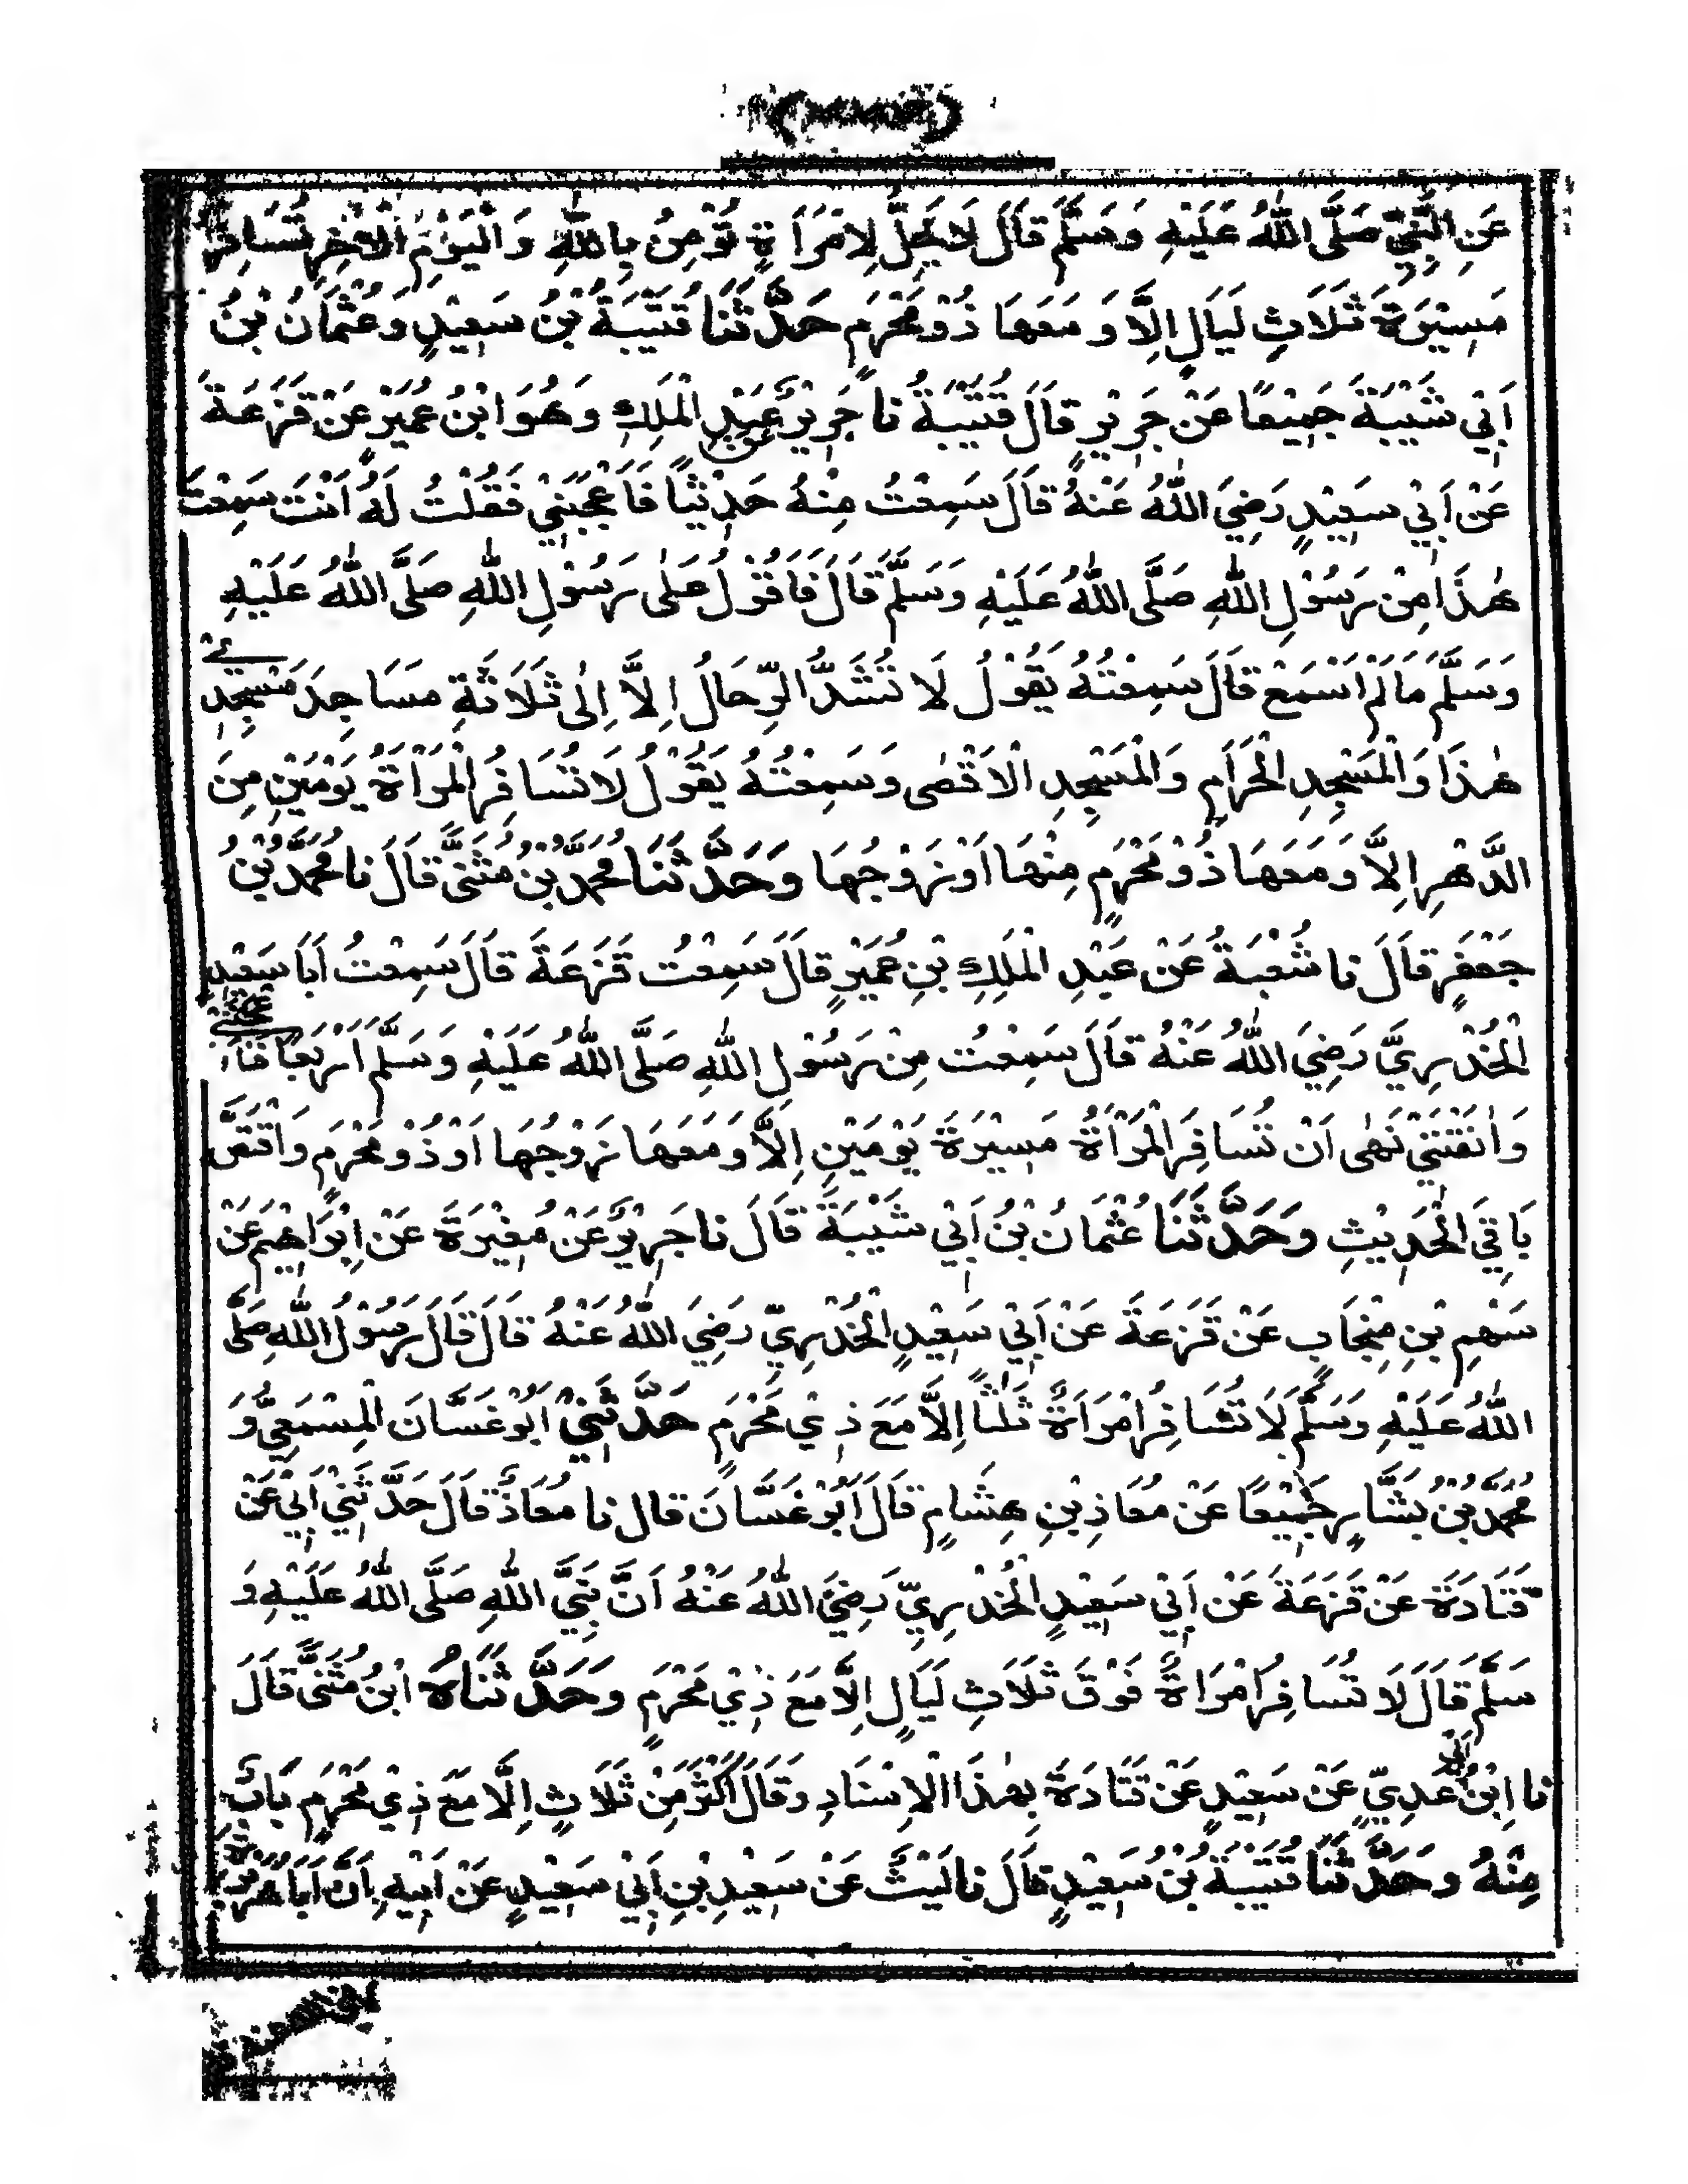 عَنِ النَّبِيِّ صَلَّى اللّٰهُ عَلَيْهِ وَسَلَّمَ قَالَ لَا يَحِلُّ لِامْرَأَةٍ تُؤْمِنُ بِاللّٰهِ وَالْيَوْمِ الْآخِرِ تُسَافِرُ
مَسِيْرَةَ ثَلَاثِ لَيَالٍ اِلَّا وَمَعَهَا ذُوْ مَحْرَمٍ حَدَّثَنَا قُتَيْبَةُ بْنُ سَعِيْدٍ وَعُثْمَانُ بْنُ
اَبِيْ شَيْبَةَ جَمِيْعًا عَنْ جَرِيْرٍ قَالَ قُتَيْبَةُ نَا جَرِيْرٌ عَنْ عَبْدِ الْمَلِكِ وَهُوَ ابْنُ عُمَيْرٍ عَنْ قَزَعَةَ
عَنْ اَبِيْ سَعِيْدٍ رَضِيَ اللّٰهُ عَنْهُ قَالَ سَمِعْتُ مِنْهُ حَدِيْثًا فَاَعْجَبَنِيْ فَقُلْتُ لَهُ اَنْتَ سَمِعْتَ
هٰذَا مِنْ رَسُوْلِ اللّٰهِ صَلَّى اللّٰهُ عَلَيْهِ وَسَلَّمَ قَالَ فَاَقُوْلُ عَلٰى رَسُوْلِ اللّٰهِ صَلَّى اللّٰهُ عَلَيْهِ
وَسَلَّمَ مَا لَمْ اَسْمَعْ قَالَ سَمِعْتُهُ يَقُوْلُ لَا تُشَدُّ الرِّحَالُ اِلَّا اِلٰى ثَلَاثَةِ مَسَاجِدَ مَسْجِدِيْ
هٰذَا وَالْمَسْجِدِ الْحَرَامِ وَالْمَسْجِدِ الْاَقْصٰى وَسَمِعْتُهُ يَقُوْلُ لَا تُسَافِرُ الْمَرْاَةُ يَوْمَيْنِ مِنَ
الدَّهْرِ اِلَّا وَمَعَهَا ذُوْ مَحْرَمٍ مِنْهَا اَوْ زَوْجُهَا وَحَدَّثَنَا مُحَمَّدُ بْنُ مُثَنًّى قَالَ نَا مُحَمَّدُ بْنُ
جَعْفَرٍ قَالَ نَا شُعْبَةُ عَنْ عَبْدِ الْمَلِكِ بْنِ عُمَيْرٍ قَالَ سَمِعْتُ قَزَعَةَ قَالَ سَمِعْتُ اَبَا سَعِيْدٍ
الْخُدْرِيَّ رَضِيَ اللّٰهُ عَنْهُ قَالَ سَمِعْتُ مِنْ رَسُوْلِ اللّٰهِ صَلَّى اللّٰهُ عَلَيْهِ وَسَلَّمَ اَرْبَعًا فَاَعْجَبْنَنِيْ
وَاٰنَقْنَنِيْ نَهٰى اَنْ تُسَافِرَ الْمَرْاَةُ مَسِيْرَةَ يَوْمَيْنِ اِلَّا وَمَعَهَا زَوْجُهَا اَوْ ذُوْ مَحْرَمٍ وَاقْتَصَّ
بَاقِيَ الْحَدِيْثِ وَحَدَّثَنَا عُثْمَانُ بْنُ اَبِيْ شَيْبَةَ قَالَ نَا جَرِيْرٌ عَنْ مُغِيْرَةَ عَنْ اِبْرَاهِيْمَ عَنْ
سَهْمِ بْنِ مِنْجَابٍ عَنْ قَزَعَةَ عَنْ اَبِيْ سَعِيْدٍ الْخُدْرِيِّ رَضِيَ اللّٰهُ عَنْهُ قَالَ قَالَ رَسُوْلُ اللّٰهِ صَلَّى
اللّٰهُ عَلَيْهِ وَسَلَّمَ لَا تُسَافِرُ امْرَاَةٌ ثَلٰثًا اِلَّا مَعَ ذِيْ مَحْرَمٍ حَدَّثَنِيْ اَبُوْ غَسَّانَ الْمِسْمَعِيُّ وَ
مُحَمَّدُ بْنُ بَشَّارٍ جَمِيْعًا عَنْ مُعَاذِ بْنِ هِشَامٍ قَالَ اَبُوْ غَسَّانَ قَالَ نَا مُعَاذٌ قَالَ حَدَّثَنِيْ اَبِيْ عَنْ
قَتَادَةَ عَنْ قَزَعَةَ عَنْ اَبِيْ سَعِيْدٍ الْخُدْرِيِّ رَضِيَ اللّٰهُ عَنْهُ اَنَّ نَبِيَّ اللّٰهِ صَلَّى اللّٰهُ عَلَيْهِ وَ
سَلَّمَ قَالَ لَا تُسَافِرُ امْرَاَةٌ فَوْقَ ثَلَاثِ لَيَالٍ اِلَّا مَعَ ذِيْ مَحْرَمٍ وَحَدَّثَنَاهُ ابْنُ مُثَنًّى قَالَ
نَا ابْنُ اَبِيْ عَدِيٍّ عَنْ سَعِيْدٍ عَنْ قَتَادَةَ بِهٰذَا الْاِسْنَادِ وَقَالَ اَكْثَرَ مِنْ ثَلَاثٍ اِلَّا مَعَ ذِيْ مَحْرَمٍ بَابٌ
مِنْهُ وَحَدَّثَنَا قُتَيْبَةُ بْنُ سَعِيْدٍ قَالَ نَا لَيْثٌ عَنْ سَعِيْدِ بْنِ اَبِيْ سَعِيْدٍ عَنْ اَبِيْهِ اَنَّ اَبَا هُرَيْرَةَ